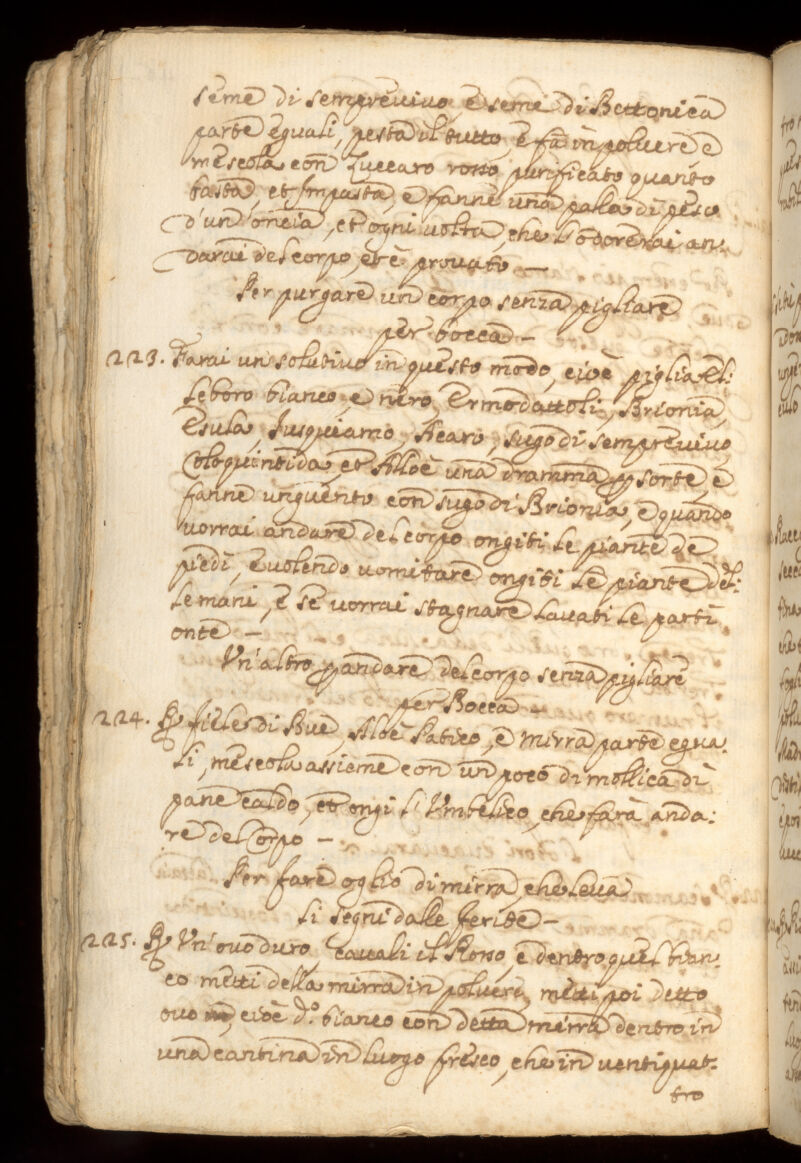 seme di sempreviuo, e seme di Bettonica
parte eguali, pesta il tutto, e fa in poluere e
mescola con Zuccaro rosso purificato quanto
basta, et Impasta, e fanne una palla di peso
d'un'oncia, et ogni uolta, che l'odorerai an:
darai del corpo, et è prouato —
Per purgare un corpo senza pigliare
per bocca —
223. Farai un solutiuo in questo modo, cioè piglia El:
leboro bianco, e nero, Ermodattoli, Brionia,
Esula, Iusquiamo, Acaro, sugo di sempreuiuo,
Coloquintida, et Alloè una dramma p sorte, e
fanne unguento con sugo di Brionia, e quando
uorrai andare del corpo ongiti le piante de
piedi, e uolendo uomitare ongiti le piante del:
le mani, e se uorrai stagnare lauati le parti
onte —
Un'altro p andare del corpo senza pigliare
per Bocca —
224. R Fiele di Bue, Aloe Patico, e mirra parte egua:
li, mescola assieme con un poco di mollica di
pane caldo, et ongi l'Vmbelico, che farà anda:
re del Corpo —
Per fare oglio di mirra, che leua
li segni dalle ferite —
225. R Un'ouo duro, cauali il Rosso, e dentro quel bian:
co metti della mirra in poluere, metti poi detto
ouo, cioè d.º bianco con detta mirra dentro in
una cantina in luogo fresco, che in uentiquat:
tro